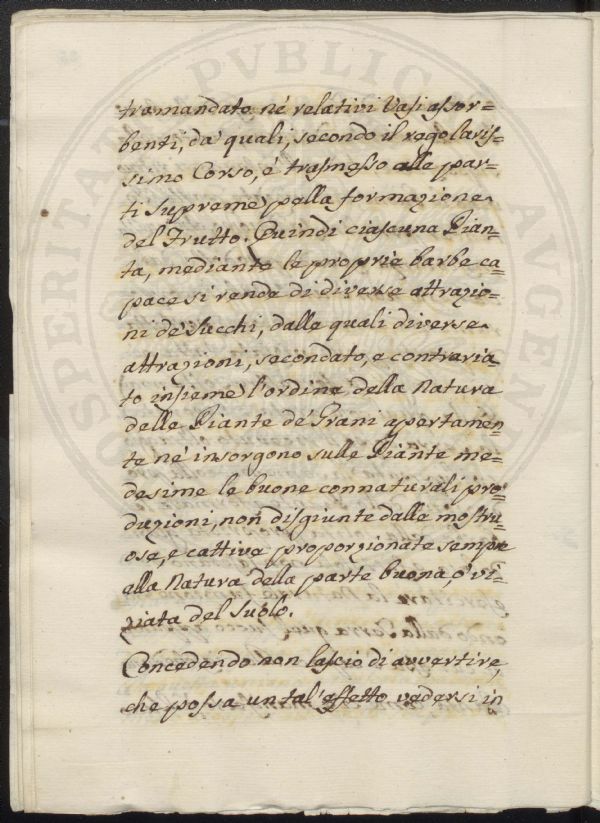 tramandato né relativi Vasi assor=
benti, da' quali, secondo il regolaris=
simo Corso, è trasmesso alle par=
ti supreme pella formazione
del Frutto. Quindi ciascuna Pian=
ta, mediante le proprie barbe ca=
pace si rende di diverse attrazio=
ni de' Succhi, dalle quali diverse
attrazioni, secondato, e contraria=
to insieme l'ordine della Natura
delle Piante de' Grani apertamen=
te né insorgono sulle Piante me=
desime le buone connaturali pro=
duzioni, non disgiunte dalle mostru=
ose, e cattive proporzionate sempre
alla Natura della parte buona, o vi=
ziata del Suolo.
Concedendo non lascio di avvertire,
che possa un tal'effetto vedersi in
PVBLICAE
AVGENDAE
PROSPERITATI